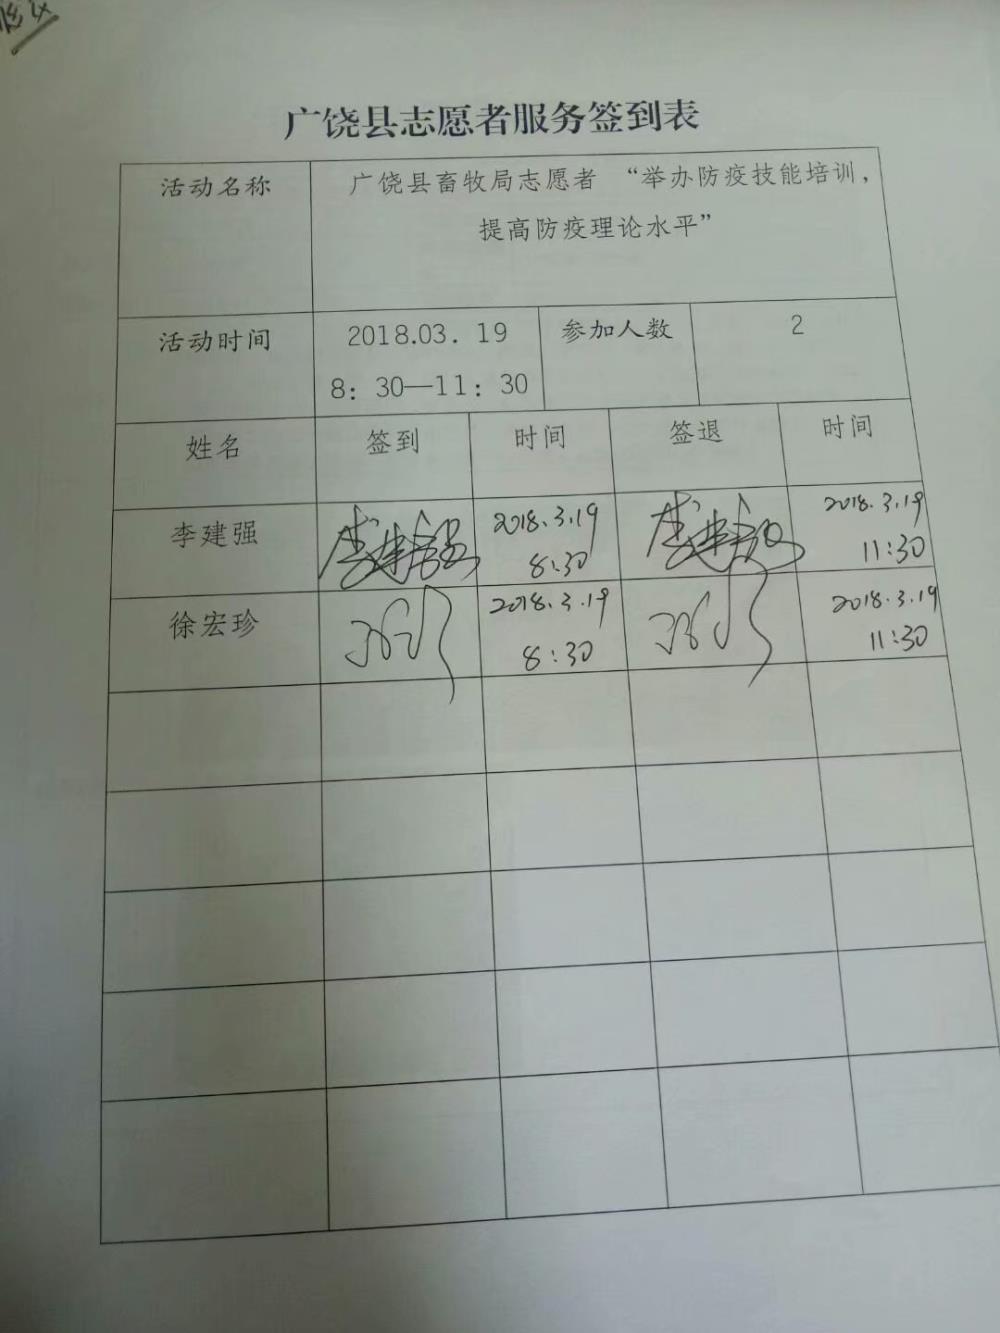 广饶县志愿者服务签到表
活动名称
广饶县畜牧局志愿者 “举办防疫技能培训，
提高防疫理论水平”
活动时间
2018.03. 19
8: 30—11: 30
参加人数
2
姓名 签到 时间 签退 时间
李建强 李建强 2018.3.19 李建强 2018.3.19
8:30 11:30
徐宏珍 2018.3.19 2018.3.19
8:30 11:30